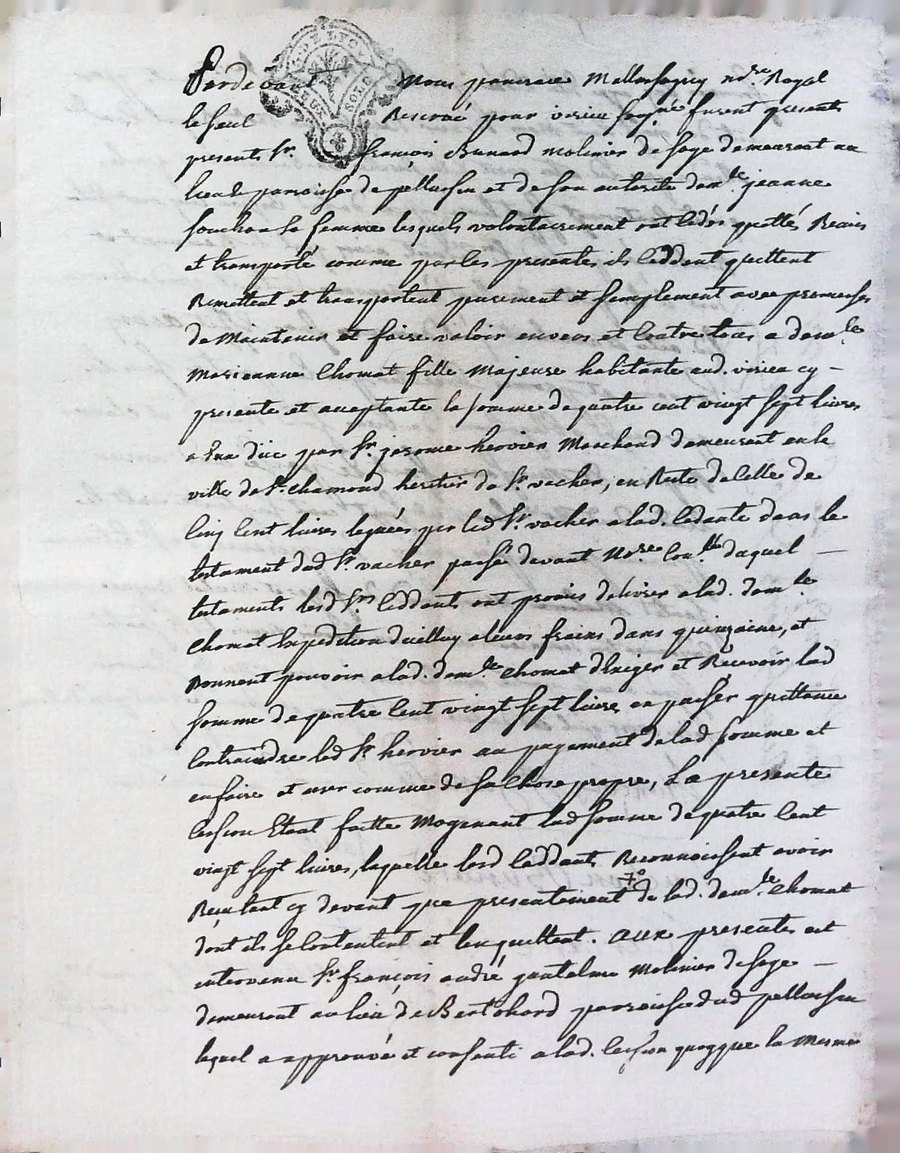 Pardevant Nous pancrace Mallassagny no.re Royal
le seul Reservé pour virieu soussigné furent presents
presents Sr. françois Burnod molinier de soye demeurant au
lieu de paroisse de pellussin et de son autorité dem.lle jeanne
sa femme lesquels volontairement ont cedés quottés Remis
et transporté comme par les presentes ils ceddent quittent
Remettent et transportent purement et simplement avec promesses
de Maintenir et faire valoir envers et Contre tous a dem.lle
Marianne Chomat fille Majeure habitante aud. virieu cy -
presente et acceptante la somme de quatre cent vingt sept livres
a Eux düe par Sr. jerome hervier Marchand demeurant en la
ville de St. chamond heritier de Sr. vacher, en Reste de Celle de
Cinq Cent livres leguées par led Sr. vacher a lad. Cedante dans le
testament dud Sr. vacher passé devant No.re duquel —
testaments lesd Srs Ceddants ont promis delivrer a lad. dem.lle
Chomat Expedition d'icelluy a leurs fraix dans quinzaine, et
Donnent pouvoir a lad. dem.lle Chomat d'Exiger et Recevoir lad
somme de quatre Cent vingt sept livres en passer quittance
Contraindre led Sr hervier au payement de lad somme et
en faire et user comme de sa Chose propre, La presente
Cession Etant faitte Moyenant lad somme de quatre Cent
vingt sept livres, laquelle lesd Ceddants Reconnoissent avoir
Reçu tant cy devant que presentement de lad. dem.lle Chomat
dont ils se Contentent et l'en quittent. aux presentes est
intervenu Sr. françois andré gantelme Molinier de soye —
demeurant au lieu de Bertohard paroisse dud pellussin
lequel a approuvé et consenti a lad. Cession quoyque la Mesme